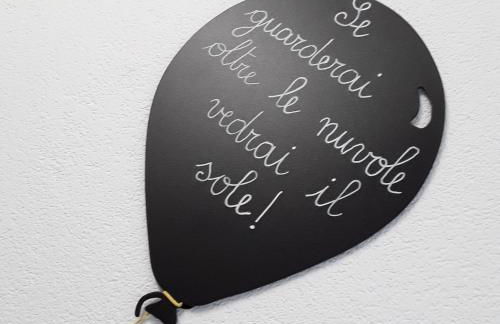 Se
guarderai
oltre le nuvole
vedrai il
sole!